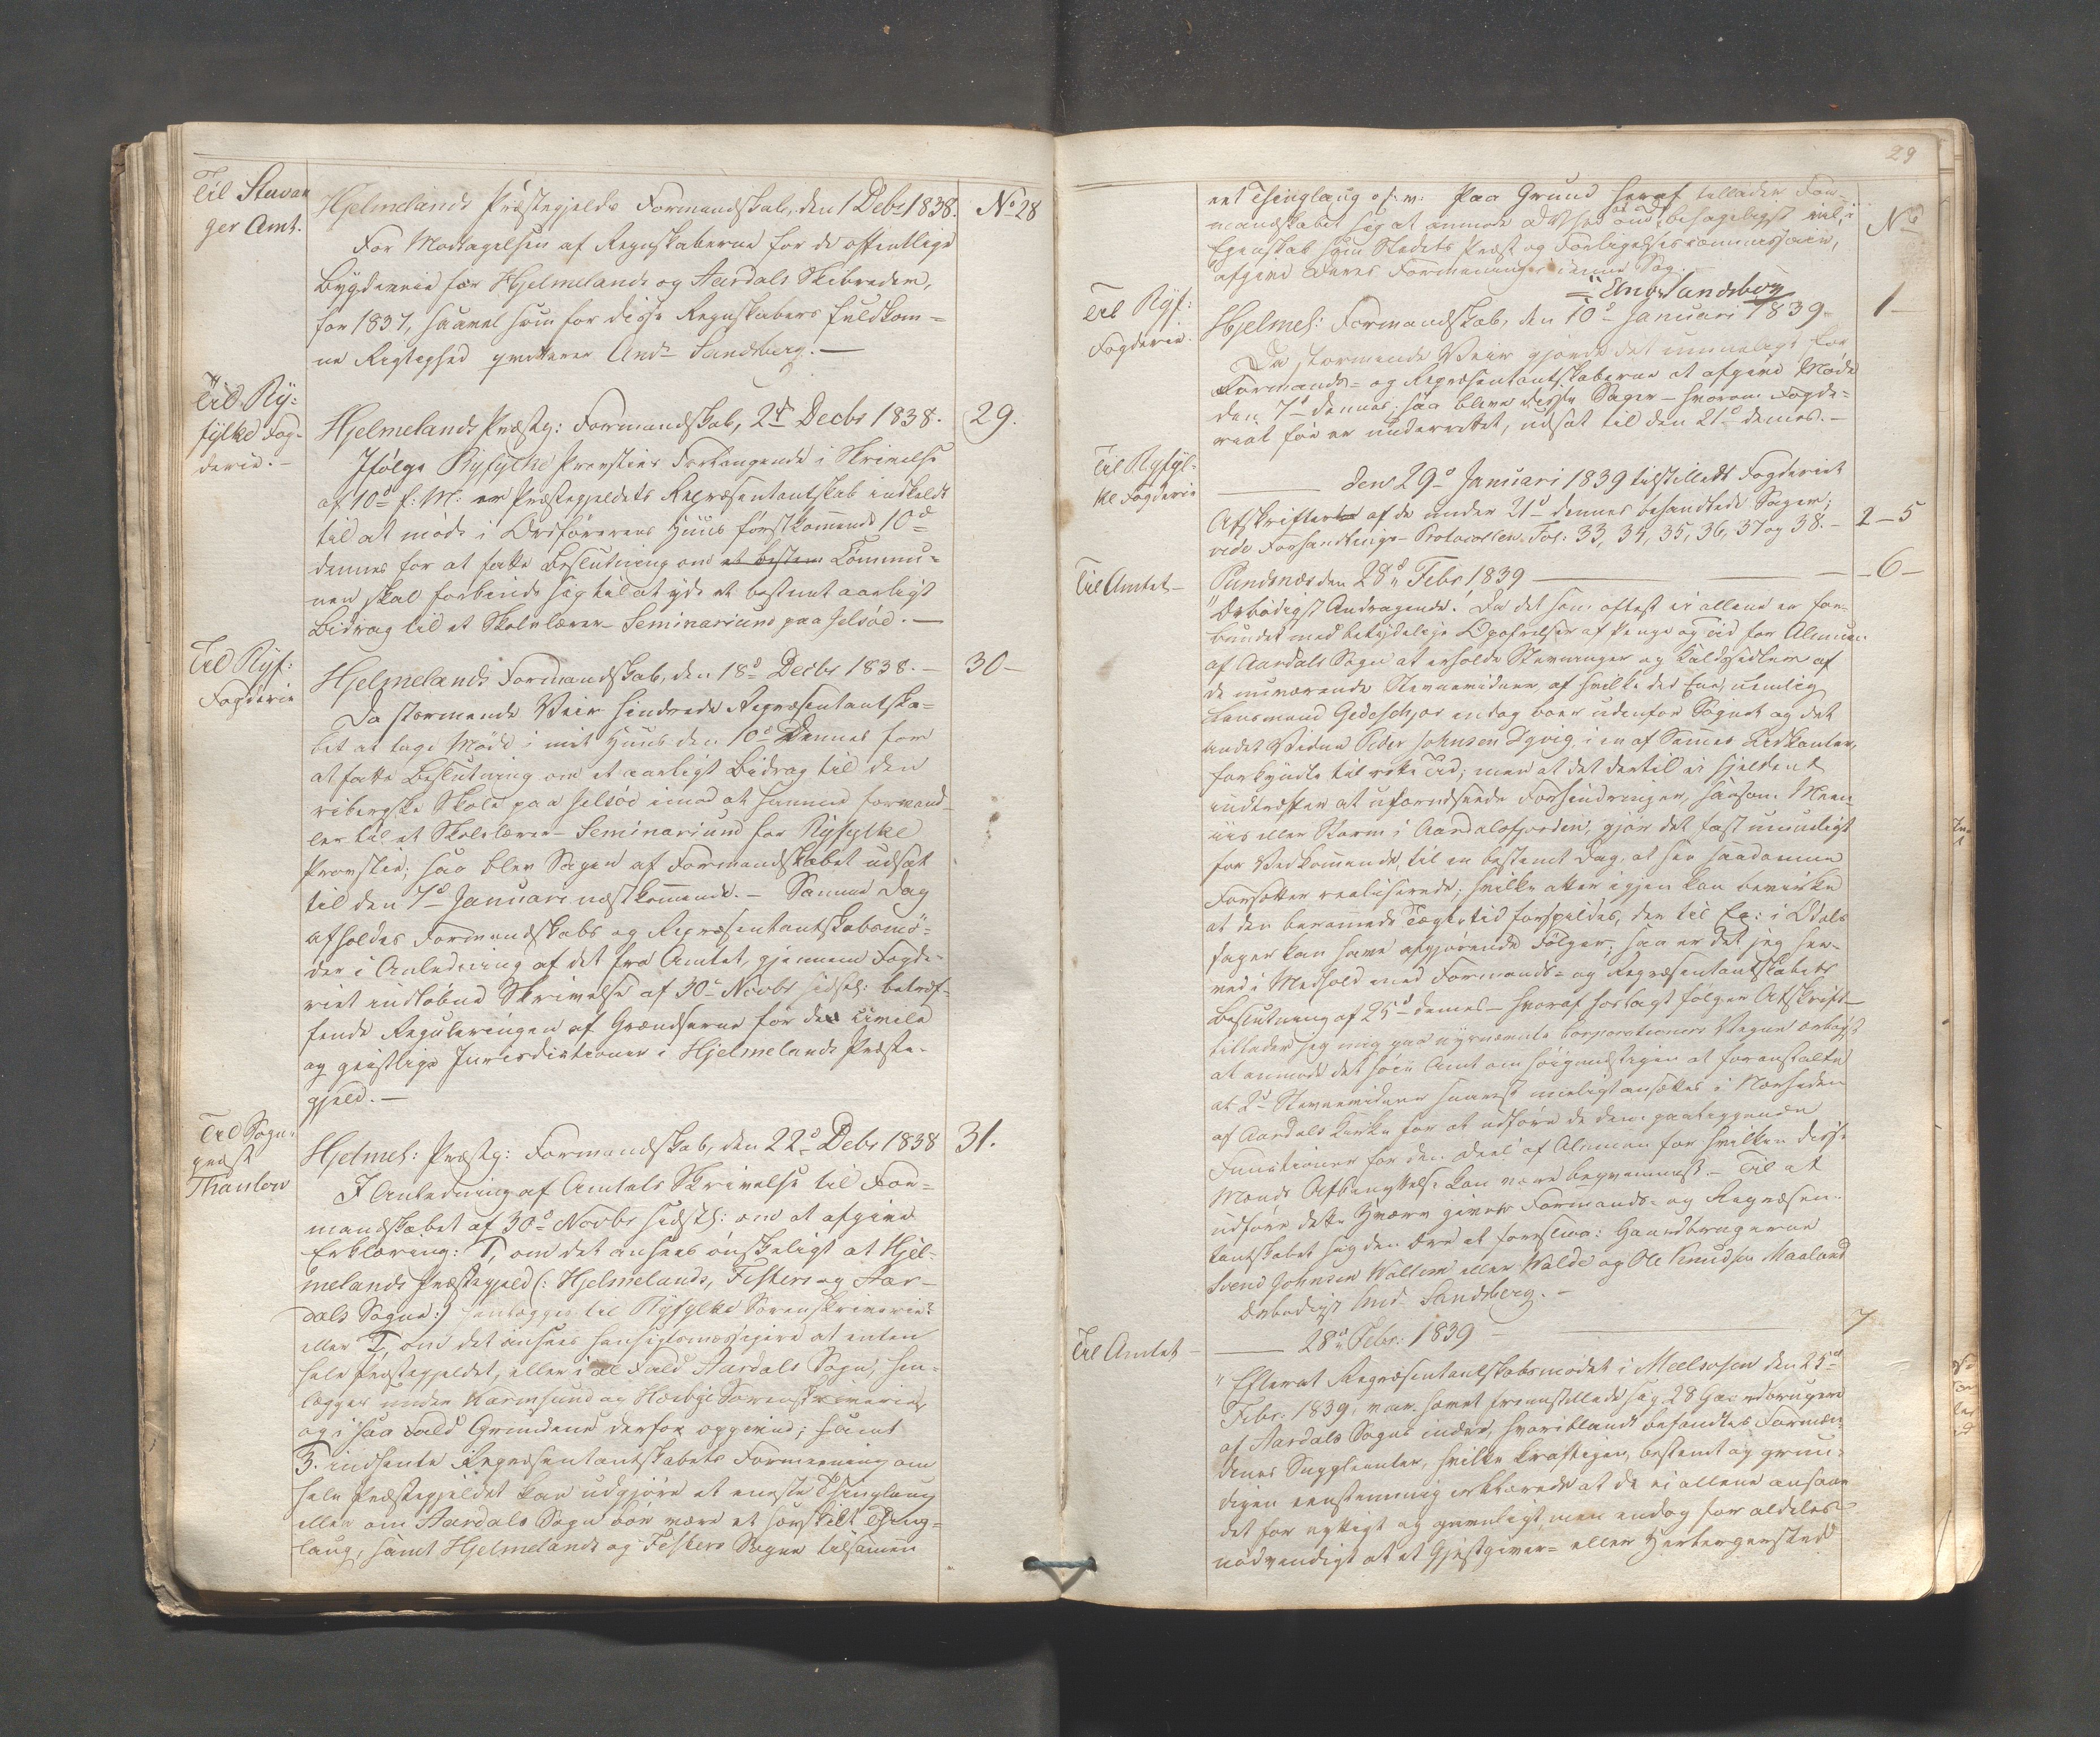 Til Stavan
ger Amt.
Hjelmelands Præstegjelds Formandskab, den 1 Debr 1838.
No 28
For Modtagelsen af Regnskaberne for de offentlige
Bygdeveie for Hjelmelands og Aardals Skibreder,
for 1837, saavel som for disse Regnskabers fuldkom=
ne Rigtighed qvitterer And. Sandberg. —
Til Ry=
fylke Fog=
derie. —
Hjelmelands Præstg: Formandskab, 2d Decbr 1838.
29.
Ifølge Ryfylke Provsties Forlangende i Skrivelse
af 10d f: M: er Præstegjeldets Repræsentantskab indkaldt
til at møde i Ordførerens Huus førstkommende 10d
dennes for at fatte Beslutning om et bestem Commu=
nen skal forbinde sig til at yde et bestemt aarligt
Bidrag til et Skolelærer-Seminarium paa Jelsøe. —
Til Ryf:
Fogderie
Hjelmelands Formandskab, den 18d Decbr 1838. —
30 —
Da stormende Veir hindrede Repræsentantska=
bet at tage Møde i mit Huus den 10d Dennes for
at fatte Beslutning om et aarligt Bidrag til den
ribergske Skole paa Jelsøe imod at samme forvand=
les til et Skolelærer-Seminarium for Ryfylke
Provstie; saa blev Sagen af Formandskabet udsat
til den 7d Januari næstkommende. — Samme Dag
afholdes Formandskabs og Repræsentantskabsmø=
der i Anledning af det fra Amtet, gjennem Fogde=
riet indløbne Skrivelse af 30d Novbr sidstl: betref=
fende Reguleringen af Grændserne for de civile
og geistlige Jurisdictioner i Hjelmelands Præste=
gjeld. —
Til Sogne=
præst
Thaulow
Hjelmel: Præstg: Formandskab, den 22d Debr 1838
31.
I Anledning af Amtets Skrivelse til For=
mandskabet af 30d Novbr sidstl: om at afgive
Erklæring: 1, om det ansees ønskeligt at Hjel=
melands Præstegjeld (: Hjelmelands, Fisters og Aar=
dals Sogne:) henlægges til Ryfylke Sorenskriverie?
eller 2, om det ansees hensigtsmæssigere at enten
hele Præstegjeldet, eller i al Fald Aardals Sogn, hen=
lægges under Karmsund og Hesbye Sorenskriverie,
og i saa Fald Grundene derfor opgives; samt
3. indhente Repræsentantskabets Formeening om
hele Præstegjeldet kan udgjøre et eneste Thinglaug
eller om Aardals Sogn bør være et særskilt Thing=
laug, samt Hjelmelands og Fisters Sogne tilsammen
29
eet Thinglaug o. s. v. Paa Grund heraf tillader For=
mandskabet sig at anmode behageligst vil, i
No
Egenskab som Stedets Præst og Forligelsescommissair,
afgive Deres Formeninger i denne Sag.
And Sandberg
Til Ryf:
Fogderie.
Hjelmel: Formandskab, den 10d Januari 1839
1 —
Da stormende Veir gjorde det umueligt for
Formands- og Repræsentantskaberne at afgive Møde
den 7d dennes; saa bleve disse Sager — hvorom Fogde=
riet før er underrettet, udsat til den 21d dennes. —
Til Ryfyl=
ke Fogderie
den 29d Januari 1839 tilstilledes Fogderiet
Afskrifter af de under 21d dennes behandlede Sager;
vide Forhandlings-Protocollen Fol: 33, 34, 35, 36, 37 og 38. —
2 — 5
Til Amtet —
Pundsnæs den 28d Febr. 1839 —
— 6 —
"Ærbødigst Andragende! Da det som oftest ei allene er for=
bundet med betydelige Opofrelser af Penge og Tid for Almuen
af Aardals Sogn at erholde Stevninger og Kaldsedler af
de nuværende Stevnevidner af hvilke det Ene, nemlig
Lensmand Gedeschjør endog boer udenfor Sognet og det
andet Vidne Peder Johnsen Dyvig, i en af Sammes Udkanter,
forkyndte til rette Tid; men at det dertil ei sjeldent
indtræffer at uforudseede Forhindringer, saasom Meen=
iis eller Storm i Aardalsfjorden, gjør det fast umueligt
for Vedkommende, til en bestemt Dag, at see saadanne
Forsætter realiserede; hvilke atter igjen kan bevirke
at den beramede Tægtetid forspildes, der til Ex: i Odels
sager kan have afgjørende Følger; saa er det jeg her=
ved i Medhold med Formands- og Repræsentantskabets
Beslutning af 25d dennes — hvoraf hoslagt følger Afskrift —
tillader jeg mig paa nysnævnte Corporationers Vegne ærbødigst
at anmode det høie Amt om høigunstigen at foranstalte
at 2de Stevnevidner snarest mueligt ansættes i Nærheden
af Aardals Kirke for at udføre de dem paaliggende
Functioner for den Deel af Almuen for hvilken disse
Mænds Afbenyttelse kan være beqvemmest. — Til at
udføre dette Hværv giver Formands- og Repræsen=
tantskabet sig den Ære at foreslaa: Gaardbrugerne
Svend Johnsen Walleim eller Walde og Ole Knudsen Maaland
Ærbødigst And. Sandberg. —
Til Amtet —
28d Febr: 1839 —
7
"Efterat Repræsentantskabsmødet i Meelsosen den 25d
Febr: 1839, var hævet fremstillede sig 28 Gaardbrugere
af Aardals Sogns inder, hvoriblandt befandtes Formæn=
denes Suppleanter, hvilke kraftigen, bestemt og grun=
digen eenstemmig erklærede at de ei allene ansaae
det for nyttigt og gavnligt, men endog for aldeles
nødvendigt at et Gjestgiver- eller Herbergersted